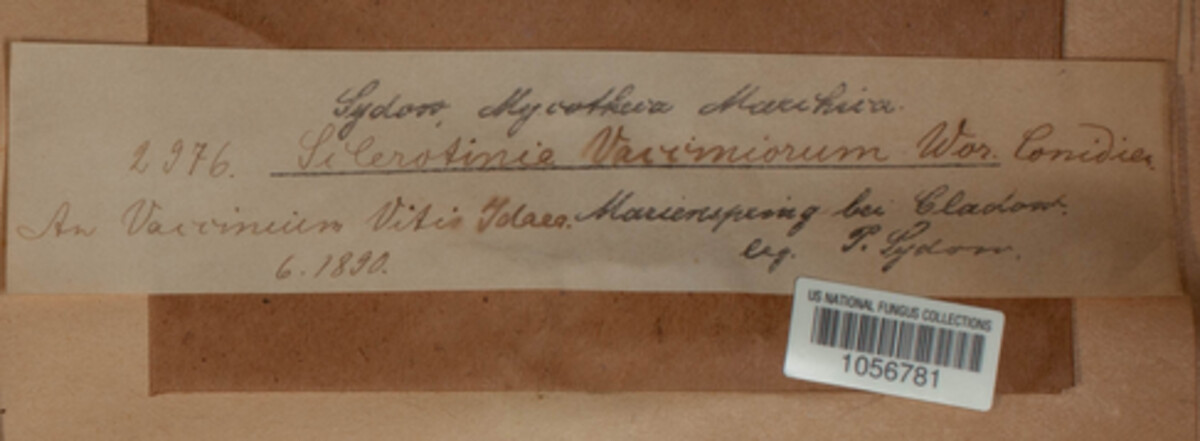 Sydow, Mycotheca Marchica.
2976. Sclerotinia Vacciniorum Wor. Conidien
An Vaccinium Vitis Idaea. Marienspring bei Cladow.
6. 1890. leg. P. Sydow.
US NATIONAL FUNGUS COLLECTIONS
1056781